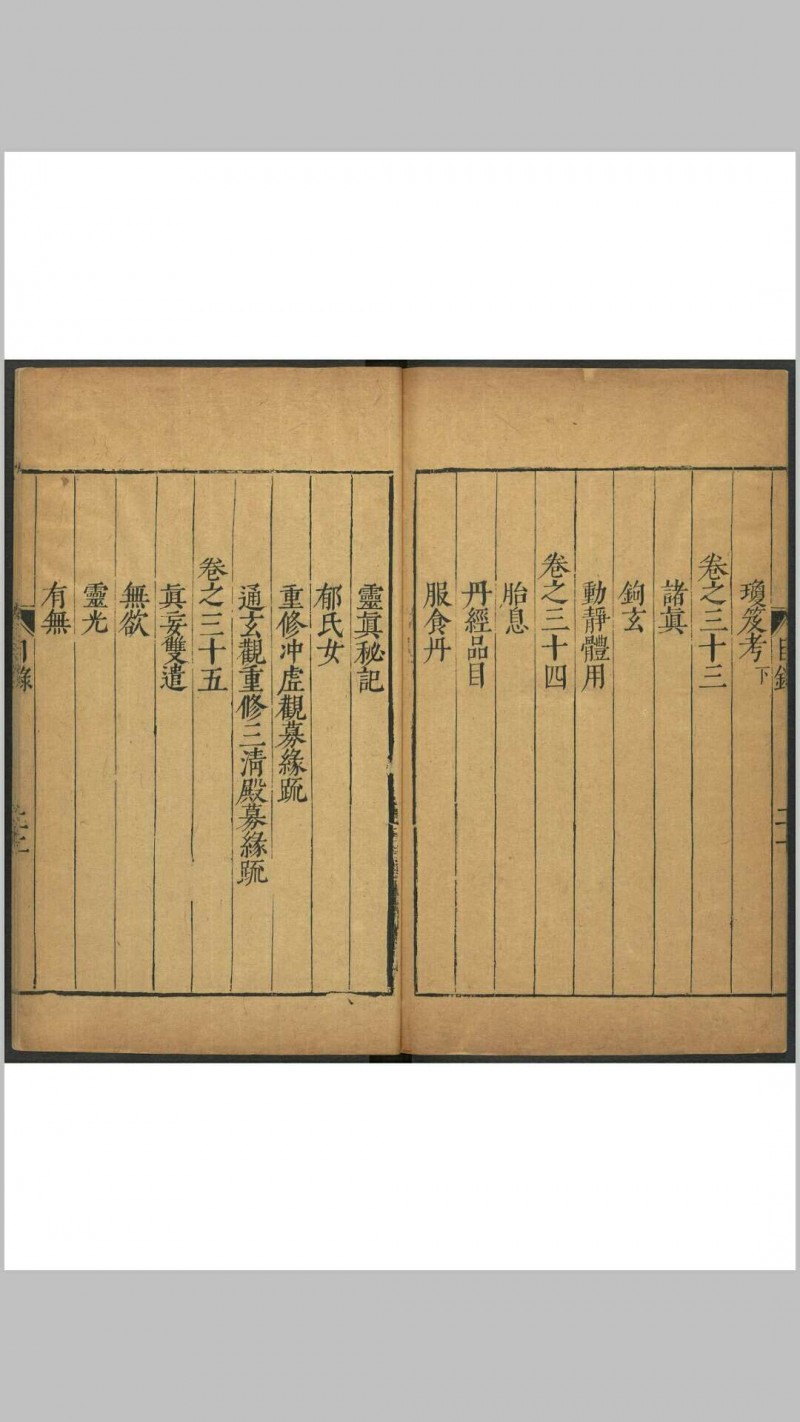 目錄
瓊笈考下
卷之三十三
諸眞
鉤玄
動靜體用
卷之三十四
胎息
丹經品目
服食丹
靈眞秘記
郁氏女
重修冲虛觀募緣䟽
通玄觀重修三淸殿募緣䟽
卷之三十五
眞妄雙遣
無欲
靈光
有無
目錄